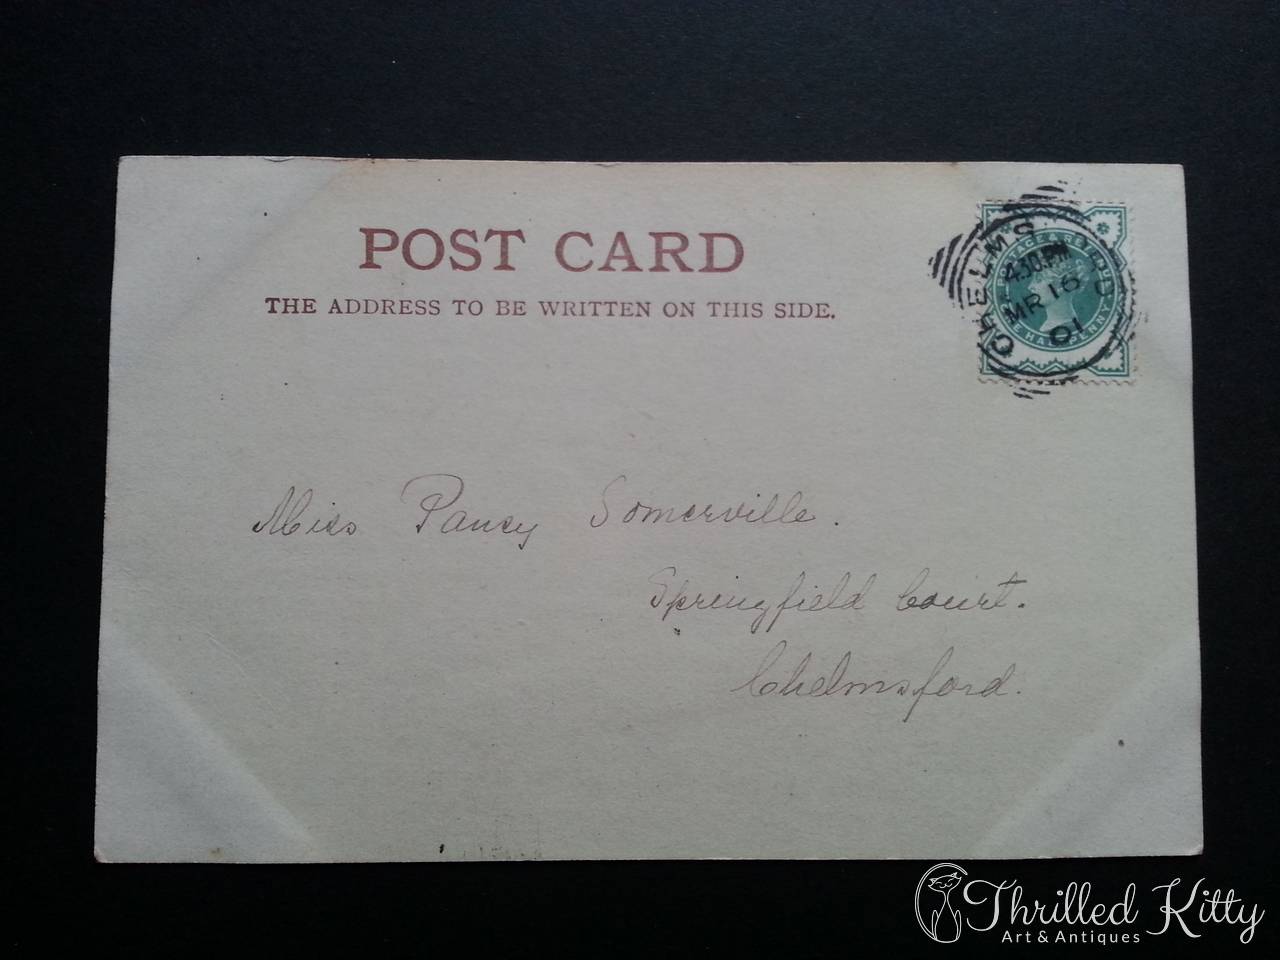 POST CARD
THE ADDRESS TO BE WRITTEN ON THIS SIDE.
CHELMSFORD
4.30 PM
MR 16
01
POSTAGE & REVENUE
ONE HALFPENNY
Miss Pansy Somerville.
Springfield Court.
Chelmsford.
Thrilled Kitty
Art & Antiques